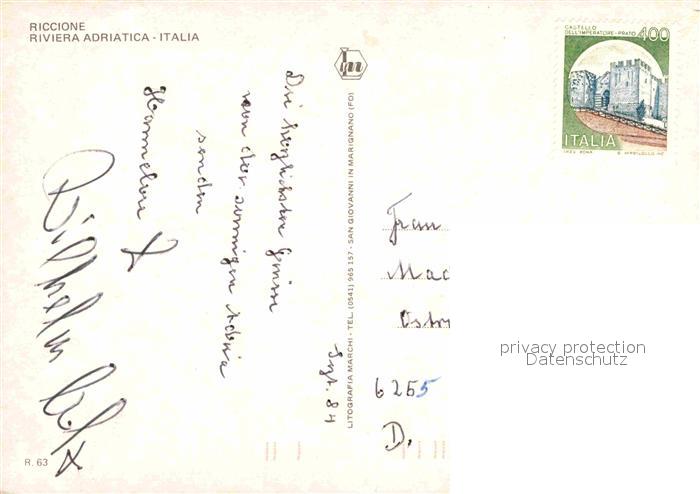 RICCIONE
RIVIERA ADRIATICA - ITALIA
CASTELLO
DELL'IMPERATORE - PRATO 400
ITALIA
Die herzlichsten Grüsse
von der sonnigen Adria
senden
Hannelore &
Wilhelm
Sept. 84
LITOGRAFIA MARCHI - TEL. (0541) 965 157 - SAN GIOVANNI IN MARIGNANO (FO)
Frau
Mac
Ostr
6255
D.
privacy protection
Datenschutz
R. 63